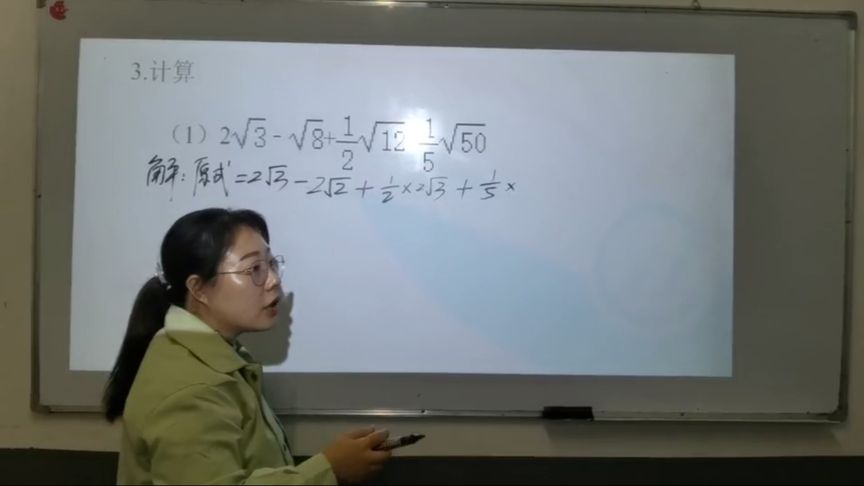 3.计算
(1) 2√3 - √8 + 1/2 √12 1/5 √50
解:原式 = 2√3 - 2√2 + 1/2 × 2√3 + 1/5 ×